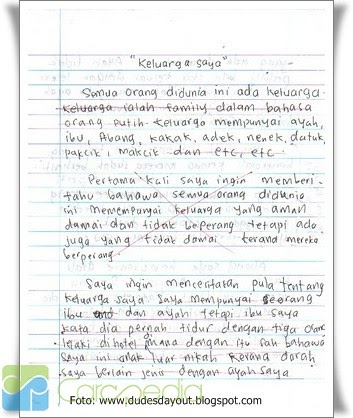 "Keluarga saya"
Semua orang didunia ini ada keluarga.
Keluarga ialah family dalam bahasa
orang putih. Keluarga mempunyai ayah,
ibu, Abang, kakak, adek, nenek, datuk,
pakcik, makcik dan etc, etc.
Pertama kali saya ingin memberi-
tahu bahawa semua orang didunia
ini memempunyai keluarga yang aman
damai dan tidak beperang tetapi ada
juga yang tidak damai kerana mereka
berperang.
Saya ingin menceritakan pula tentang
keluarga saya. Saya mempunyai seorang
ibu dan ayah tetapi ibu saya
kata dia pernah tidur dengan tiga orang
lelaki di hotel mana dengan itu sah bahawa
saya ini anak luar nikah kerana darah
saya berlain jenis dengan ayah saya
Carcpedia
Foto: www.dudesdayout.blogspot.com